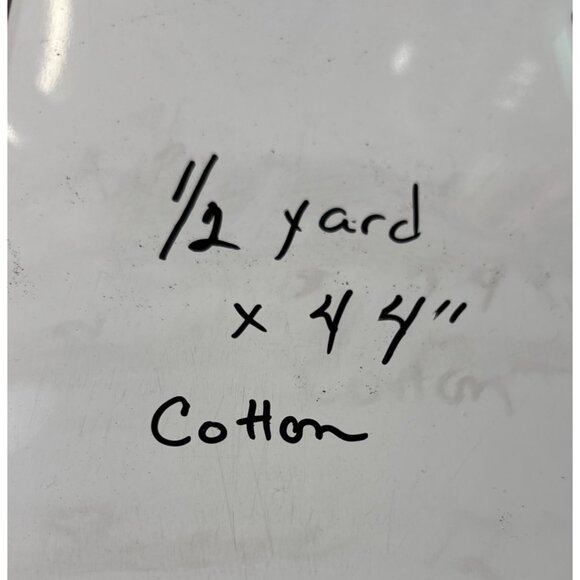 1/2 yard
x 44"
Cotton